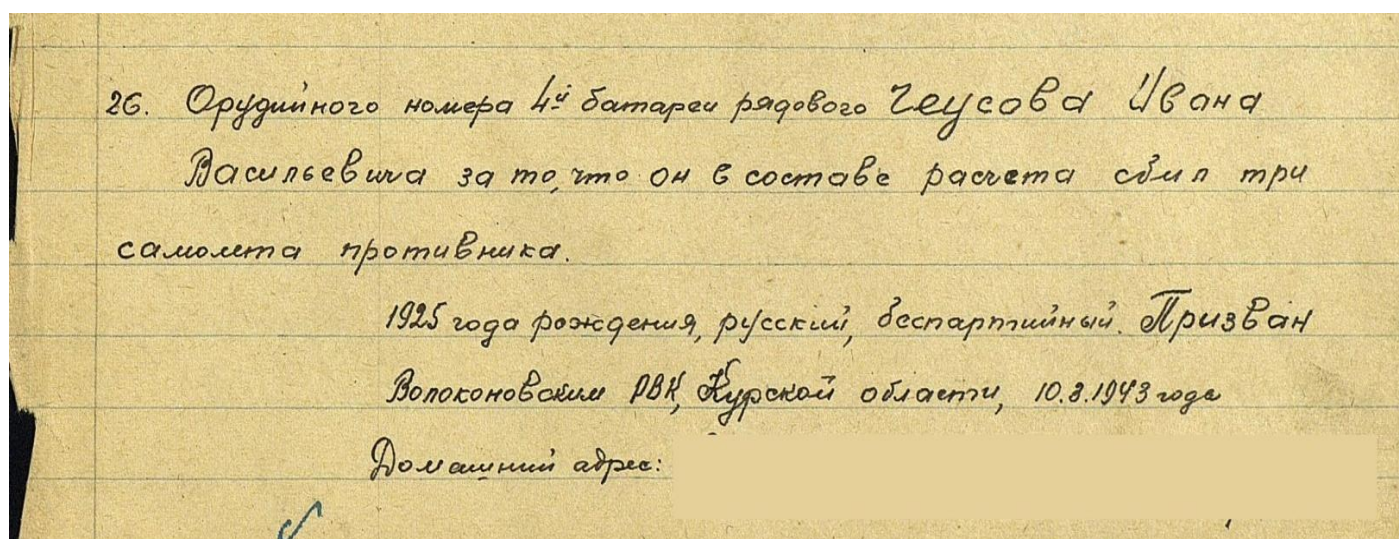 26. Орудийного номера 4й батареи рядового Чеусова Ивана
Васильевича за то, что он в составе расчета сбил три
самолета противника.
1925 года рождения, русский, беспартийный. Призван
Волоконовским РВК, Курской области, 10.3.1943 года
Домашний адрес: